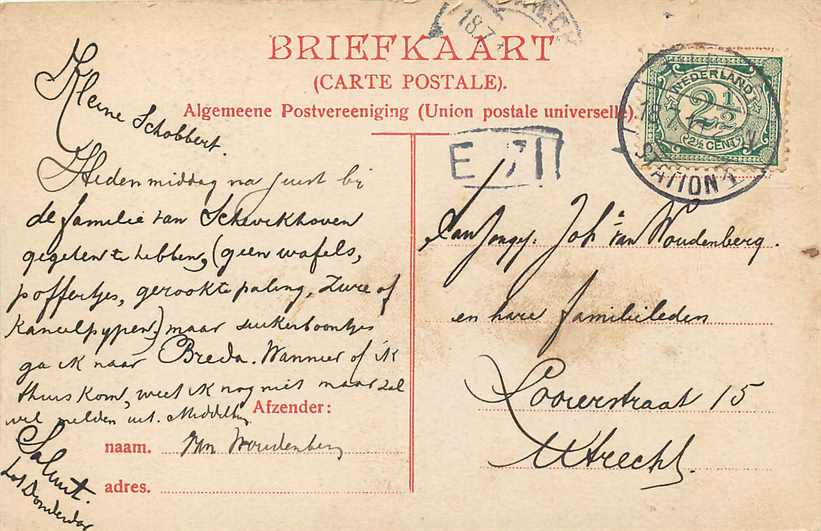 BRIEFKAART
(CARTE POSTALE).
Algemeene Postvereeniging (Union postale universelle).
NEDERLAND
2½
(2½ CENT)
18.7
STATION
E 7
Kleine Schobbert.
Heden middag na juist bij
de familie van Schevikhoven
gegeten te hebben, (geen wafels,
poffertjes, gerookte paling, zure of
kaneelpypen) maar suikerboontjes
ga ik naar Breda. Wanneer of ik
thuis kom, weet ik nog niet maar zal
wel melden uit
Salut.
tot Donderdag
Afzender:
naam. Woudenberg
adres.
Aan Jongej. Joha van Woudenberg.
en hare familieleden
Looierstraat 15
Utrecht.